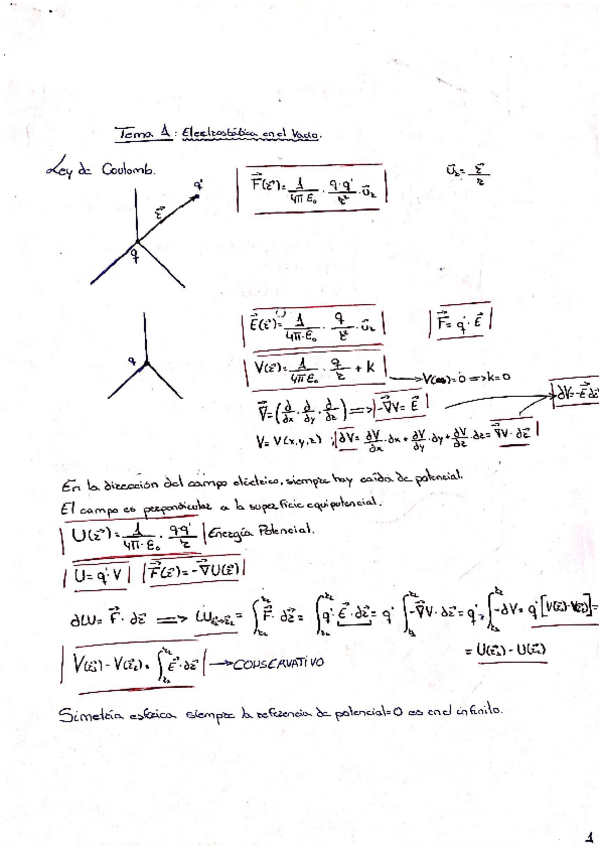 Tema 1: Electrostática en el Vacío.
Ley de Coulomb.
F⃗(r⃗) = 1/(4π ε₀) · q·q'/r² · u⃗ᵣ
u⃗ᵣ = r⃗/r
q'
r⃗
q
E⃗(r⃗) = 1/(4π·ε₀) · q/r² · u⃗ᵣ
F⃗ = q'·E⃗
q
V(r⃗) = 1/(4π ε₀) · q/r + k
→ V(∞) = 0 ⇒ k=0
∇⃗ = (∂/∂x, ∂/∂y, ∂/∂z) ⇒ -∇⃗V = E⃗
dV = -E⃗ dr⃗
V = V(x,y,z) ; dV = ∂V/∂x · dx + ∂V/∂y · dy + ∂V/∂z · dz = ∇⃗V · dr⃗
En la dirección del campo eléctrico, siempre hay caída de potencial.
El campo es perpendicular a la superficie equipotencial.
U(r⃗) = 1/(4π·ε₀) · q·q'/r Energía Potencial.
U = q'·V F⃗(r⃗) = -∇⃗U(r⃗)
dW = F⃗ · dr⃗ ⇒ W r₁→r₂ = ∫ r₁ r₂ F⃗ · dr⃗ = ∫ r₁ r₂ q'·E⃗·dr⃗ = q' ∫ r₁ r₂ -∇⃗V·dr⃗ = q' ∫ r₁ r₂ -dV = q' [V(r₁)-V(r₂)] =
= U(r⃗₁) - U(r⃗₂)
V(r⃗₁) - V(r⃗₂) = ∫ r₁ r₂ E⃗·dr⃗ → CONSERVATIVO
Simetría esférica siempre la referencia de potencial=0 es en el infinito.
1